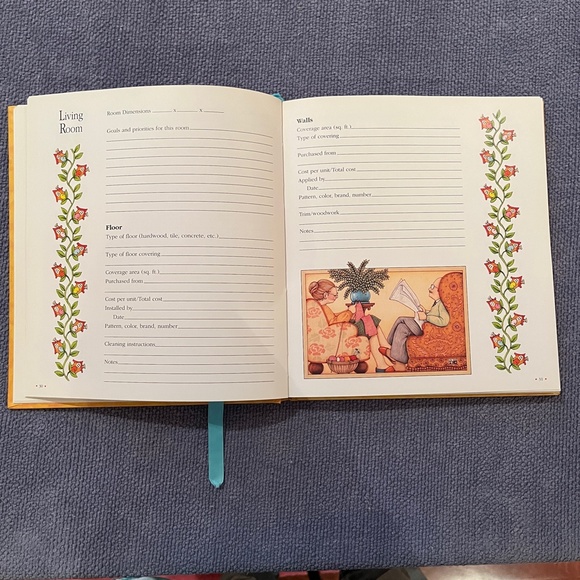 Living
Room
Room Dimensions ______ x ______ x ______
Goals and priorities for this room
Floor
Type of floor (hardwood, tile, concrete, etc.)
Type of floor covering
Coverage area (sq. ft.)
Purchased from
Cost per unit/Total cost
Installed by
Date
Pattern, color, brand, number
Cleaning instructions
Notes
Walls
Coverage area (sq. ft.)
Type of covering
Purchased from
Cost per unit/Total cost
Applied by
Date
Pattern, color, brand, number
Trim/woodwork
Notes